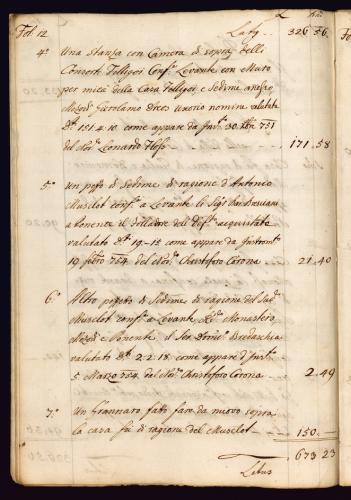 Fol 12
Latq. 326 56.
4.° Una stanza con Camera di sopra delli
Consorti Tollegri Conf.ª Levante con Muro
per mità della Casa Tollegri, e Sedime anesso
Mezodì Girolamo uxorio nomine valutata
151.4.10 come appare da Ins.° 30. 751
del Nod.° Leonardo 171.58
5.° Un pezzo di Sedime di ragione d'Antonio
Musclet conf.ª a Levante li Sig.i
a Ponente il dell' acquistata
valutato 19-15 come appare da Instrom.°
19 febro 754. del Nod.° Christoforo Corona 21.40
6.° Altro pezzeto di Sedime di ragione del Sud.°
Musclet conf.ª a Levante Monastero
Mezodì e Ponente il
valutato 2.2.18. come appare d'Ins.°
5. Marzo 754. del Nod.° Christoforo Corona 2.49
7.° Un Grannaro fatto fare da nuovo sopra
la casa fu di ragione del Musclet 150.
673 23
Latus